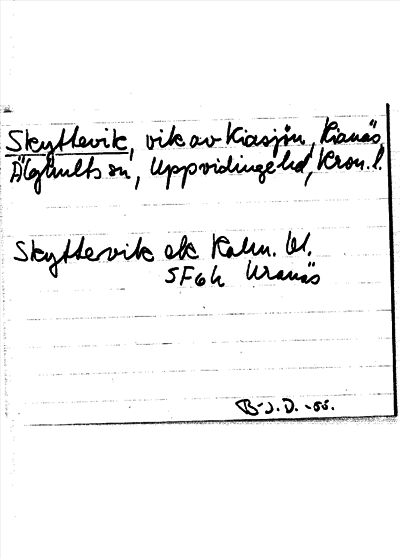 Skyttevik, vik av Kiasjön, Kianäs,
Älghults sn, Uppvidinge hd, Kron. l.
Skyttervik ek Kalm. bl.
5F6h Kranäs
B-J.D. -55.